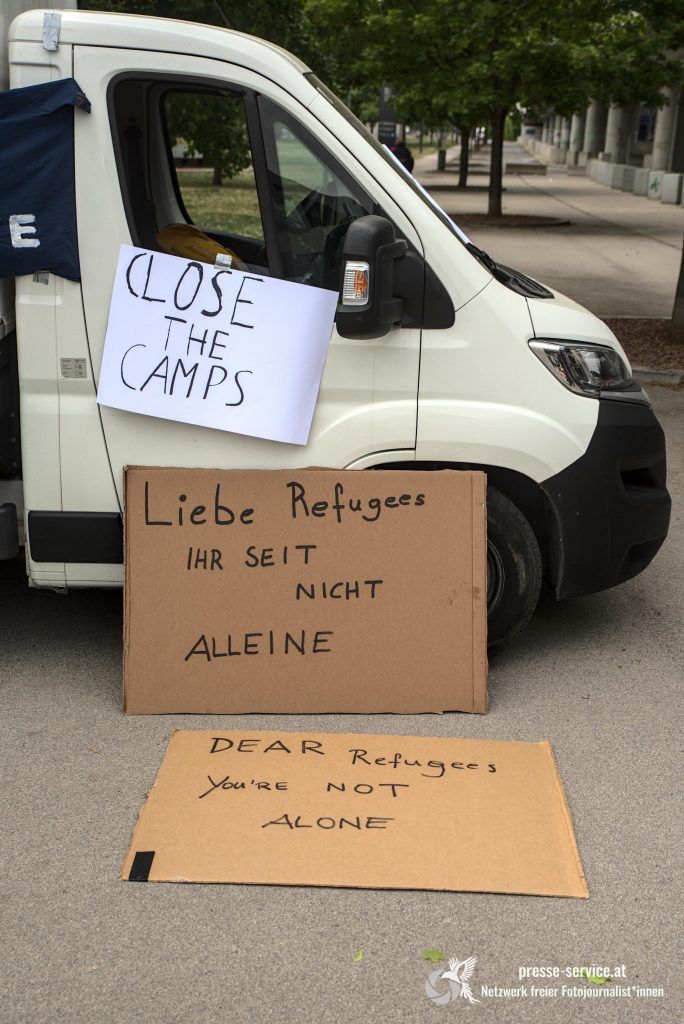 E
CLOSE
THE
CAMPS
Liebe Refugees
IHR SEIT
NICHT
ALLEINE
DEAR Refugees
YOU'RE NOT
ALONE
presse-service.at
Netzwerk freier Fotojournalist*innen